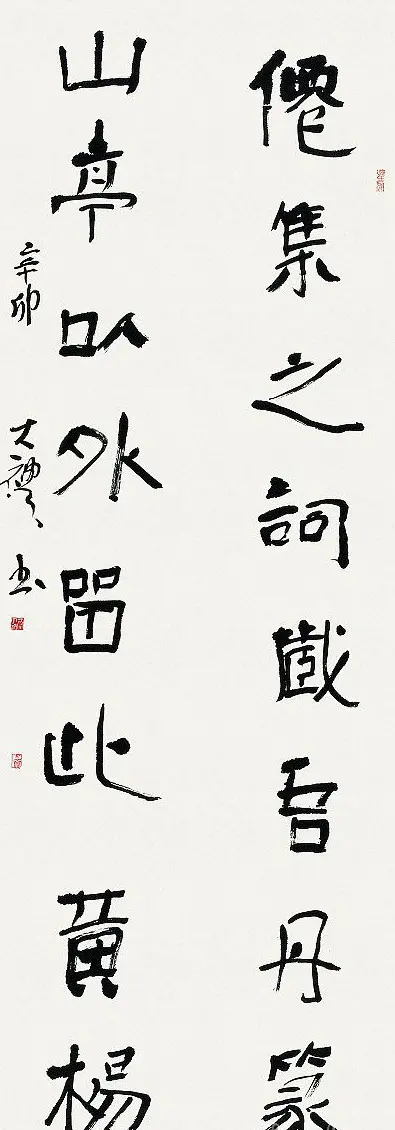 僊集之詞藏吾丹篆
山亭以外畱此黃楊
辛卯 大 书